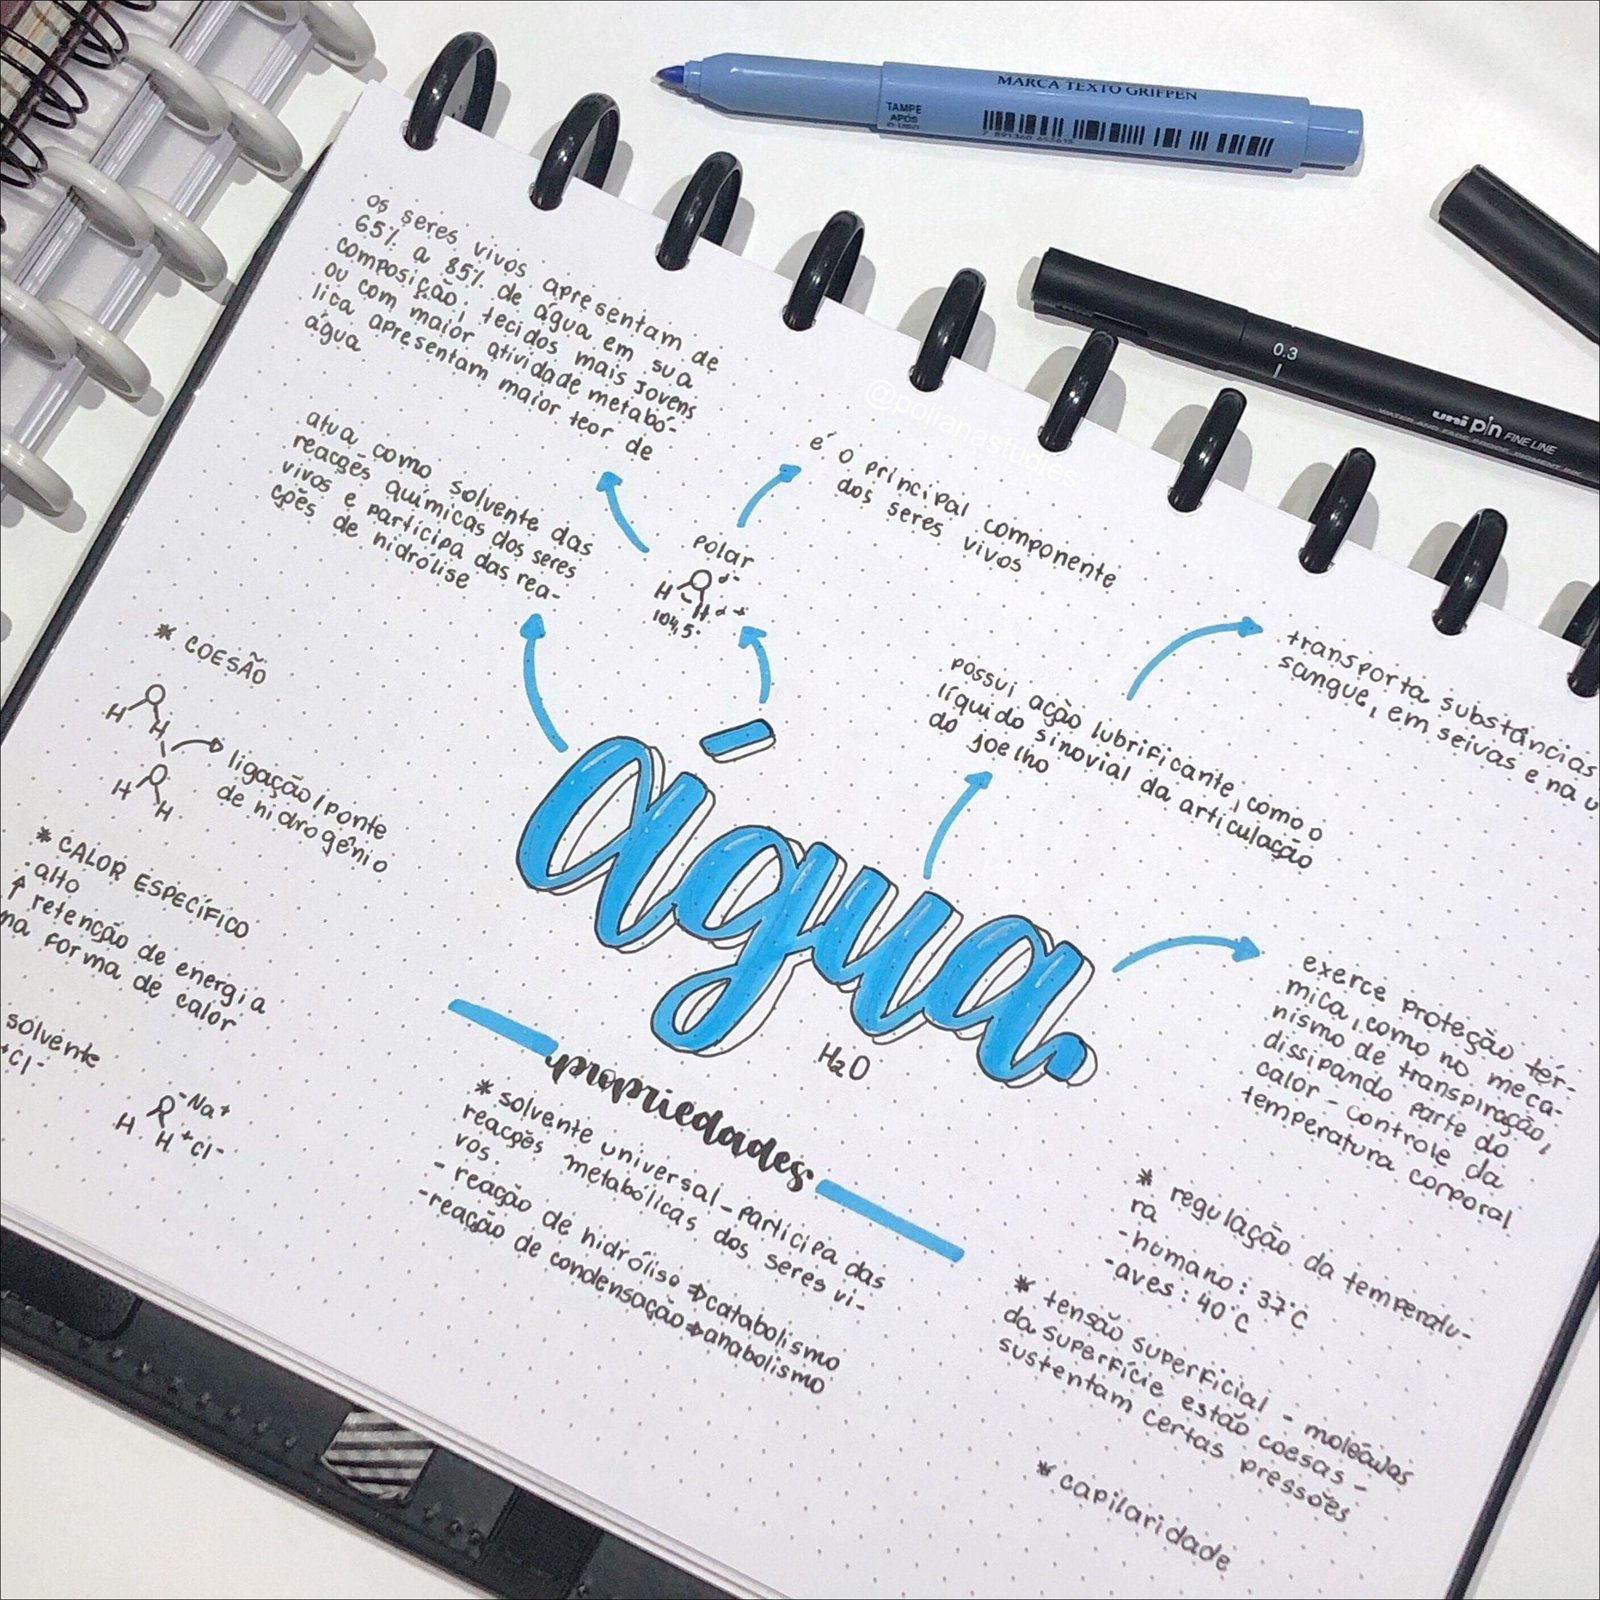 MARCA TEXTO GRIFPEN
TAMPE
APÓS
O USO
7 891360 653615
0.3
uni pin FINE LINE
WATER AND FADE PROOF, PIGMENT INK
@polianastudies
os seres vivos apresentam de
65% a 85% de água em sua
composição; tecidos mais jovens
ou com maior atividade metabó-
lica apresentam maior teor de
água
é o principal componente
dos seres vivos
atua como solvente das
reações químicas dos seres
vivos e participa das rea-
ções de hidrólise
polar
H
H
104,5°
transporta substâncias
sangue, em seivas e na u
possui ação lubrificante, como o
líquido sinovial da articulação
do joelho
água
H₂O
exerce proteção tér-
mica, como no meca-
nismo de transpiração,
dissipando parte do
calor - controle da
temperatura corporal
* COESÃO
H O
H
ligação/ponte
de hidrogênio
H O
H
* CALOR ESPECÍFICO
- alto
↑ retenção de energia
na forma de calor
solvente
+Cl-
O -Na+
H H +Cl-
propriedades
* solvente universal - participa das
reações metabólicas dos seres vi-
vos.
- reação de hidrólise ⇒ catabolismo
- reação de condensação ⇒ anabolismo
* regulação da temperatu-
ra
- humano: 37°C
- aves: 40°C
* tensão superficial - moléculas
da superfície estão coesas -
sustentam certas pressões
* capilaridade